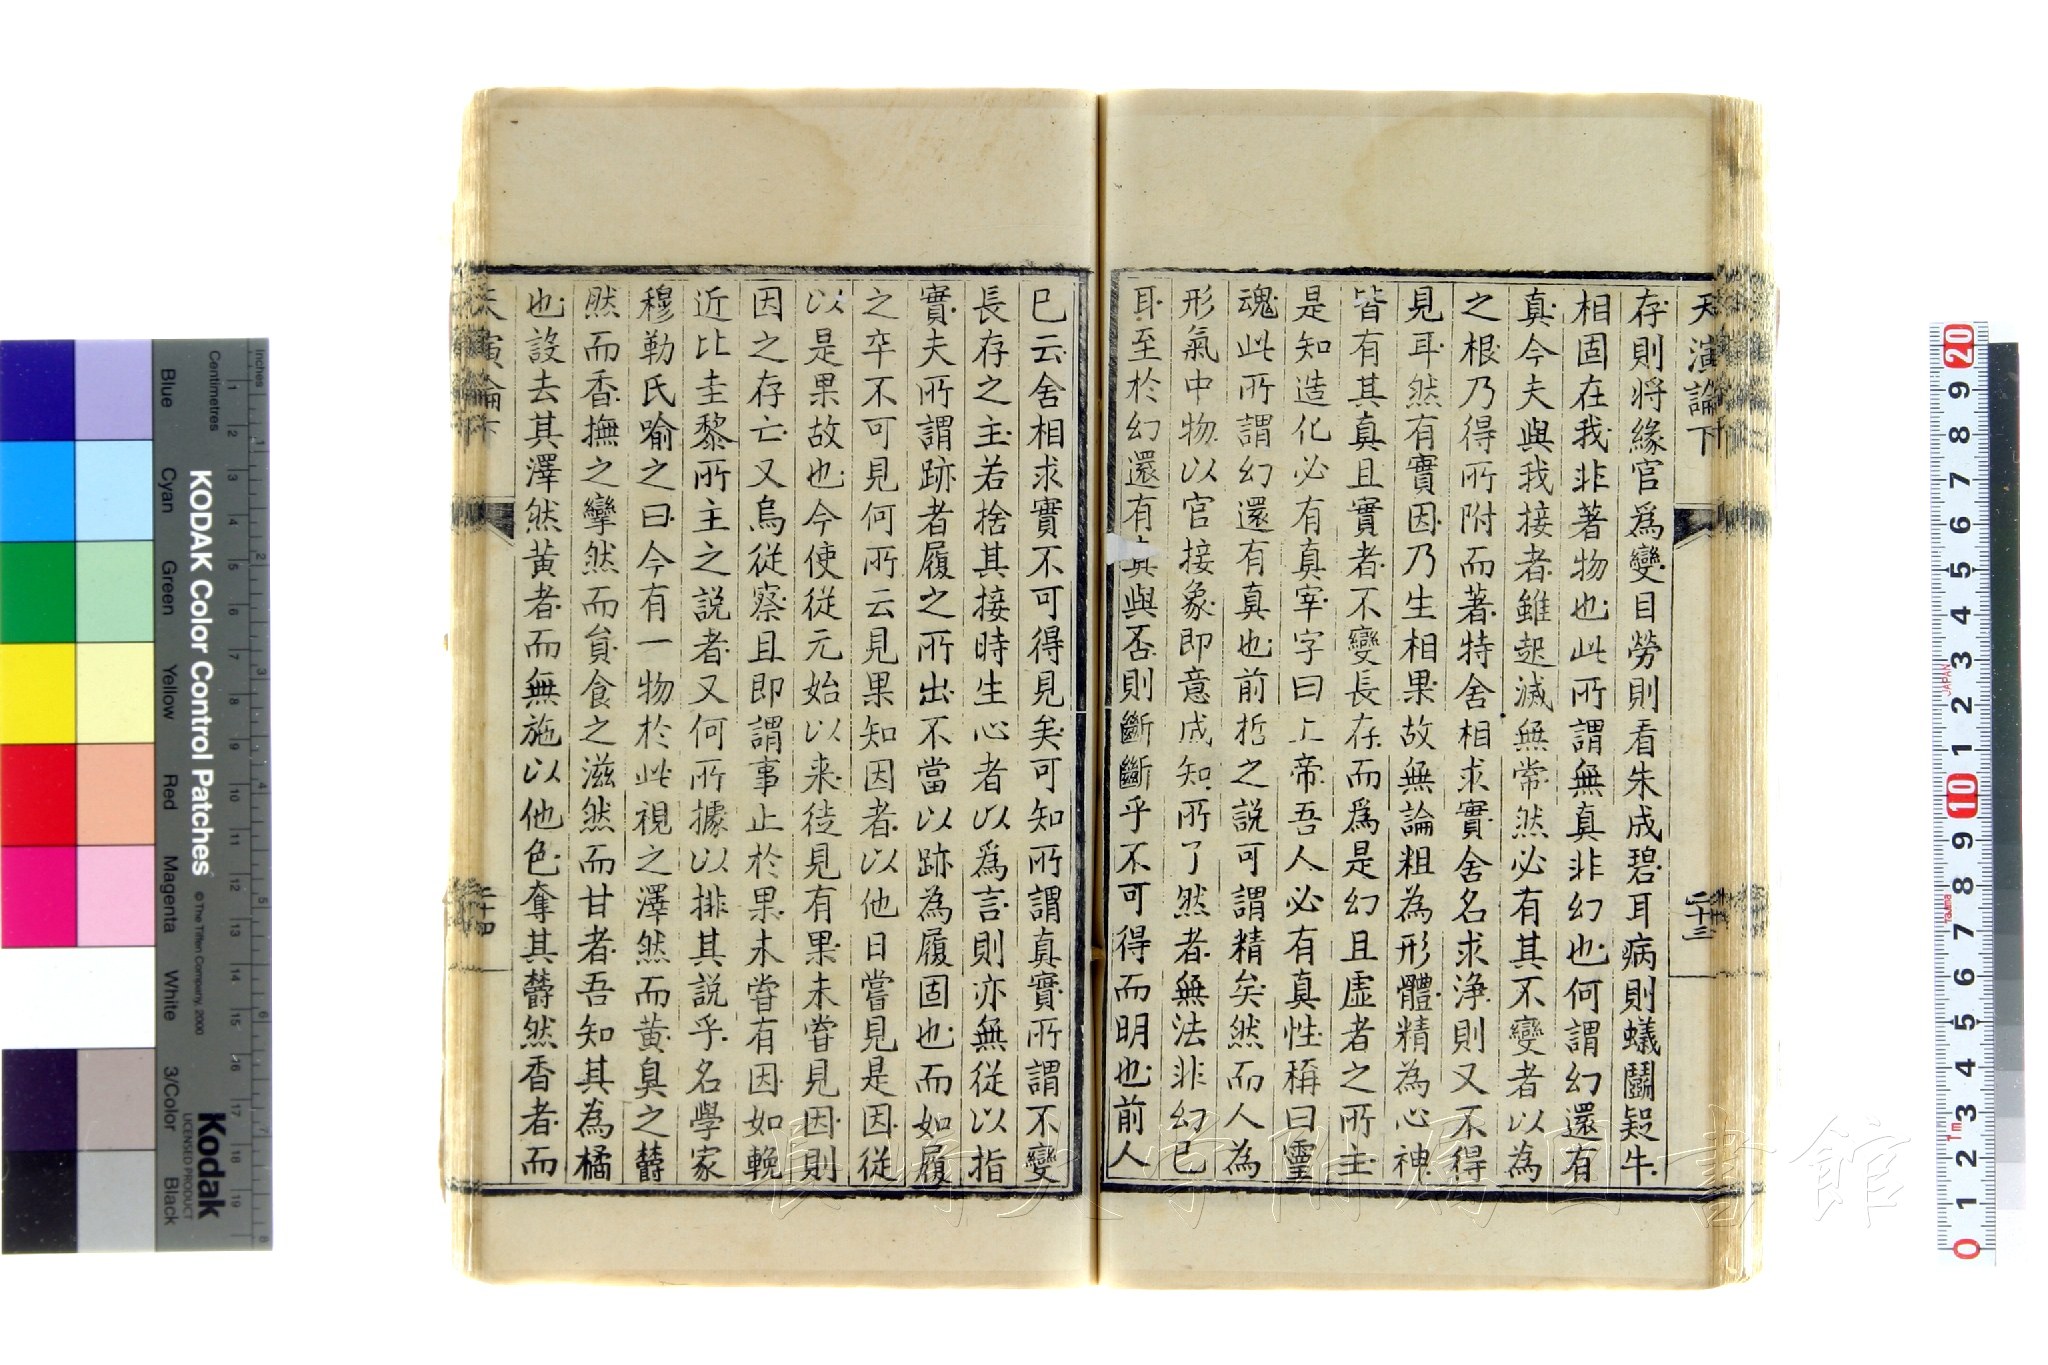 天演論下
二十三
存則將緣官爲變目勞則看朱成碧耳病則蟻鬭疑牛
相固在我非著物也此所謂無真非幻也何謂幻還有
真今夫與我接者雖起滅無常然必有其不變者以為
之根乃得所附而著特舍相求實舍名求淨則又不得
見耳然有實因乃生相果故無論粗為形體精為心神
皆有其真且實者不變長存而爲是幻且虛者之所主
是知造化必有真宰字曰上帝吾人必有真性稱曰靈
魂此所謂幻還有真也前哲之説可謂精矣然而人為
形氣中物以官接象即意成知所了然者無法非幻已
耳至於幻還有真與否則斷斷乎不可得而明也前人
已云舍相求實不可得見矣可知所謂真實所謂不變
長存之主若捨其接時生心者以爲言則亦無從以指
實夫所謂跡者履之所出不當以跡為履固也而如履
之卒不可見何所云見果知因者以他日嘗見是因從
以是果故也今使從元始以来徒見有果未嘗見因則
因之存亡又烏從察且即謂事止於果未嘗有因如輓
近比圭黎所主之説者又何所據以排其説乎名學家
穆勒氏喻之曰今有一物於此視之澤然而黃臭之欝
然而香撫之攣然而員食之滋然而甘者吾知其為橘
也設去其澤然黃者而無施以他色奪其欝然香者而
天演論下
二十四
KODAK Color Control Patches
© The Tiffen Company, 2000
Kodak
LICENSED PRODUCT
Centimetres
inches
Blue
Cyan
Green
Yellow
Red
Magenta
White
3/Color
Black
JAPAN
長崎大学附属図書館